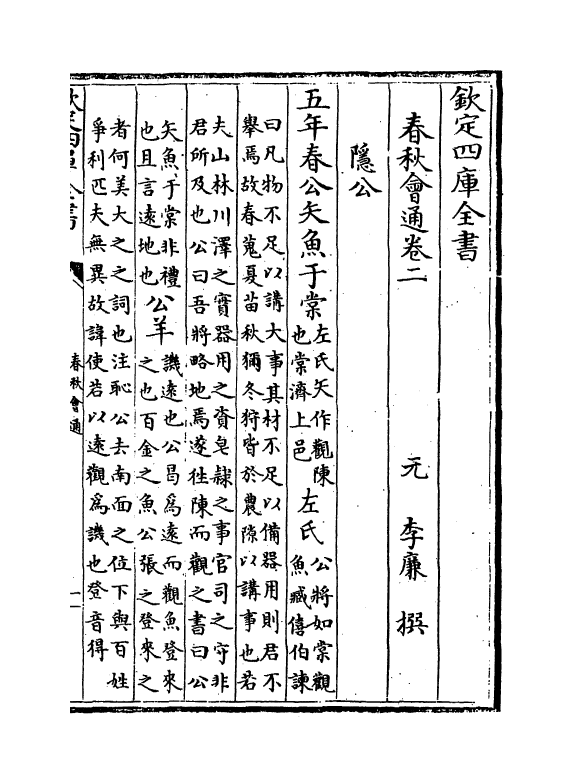 欽定四庫全書
春秋會通卷二　元　李廉　撰
隱公
五年春公矢魚于棠
左氏矢作觀陳
也棠濟上邑
左氏
公將如棠觀
魚臧僖伯諫
曰凡物不足以講大事其材不足以備器用則君不
舉焉故春蒐夏苗秋獮冬狩皆於農隙以講事也若
夫山林川澤之實器用之資皁隸之事官司之守非
君所及也公曰吾將略地焉遂徃陳而觀之書曰公
矢魚于棠非禮
也且言遠地也
公羊
譏遠也公曷爲遠而觀魚登來
之也百金之魚公張之登來之
者何美大之之詞也注恥公去南面之位下與百姓
爭利匹夫無異故諱使若以遠觀爲譏也登音得
欽定四庫全書
春秋會通